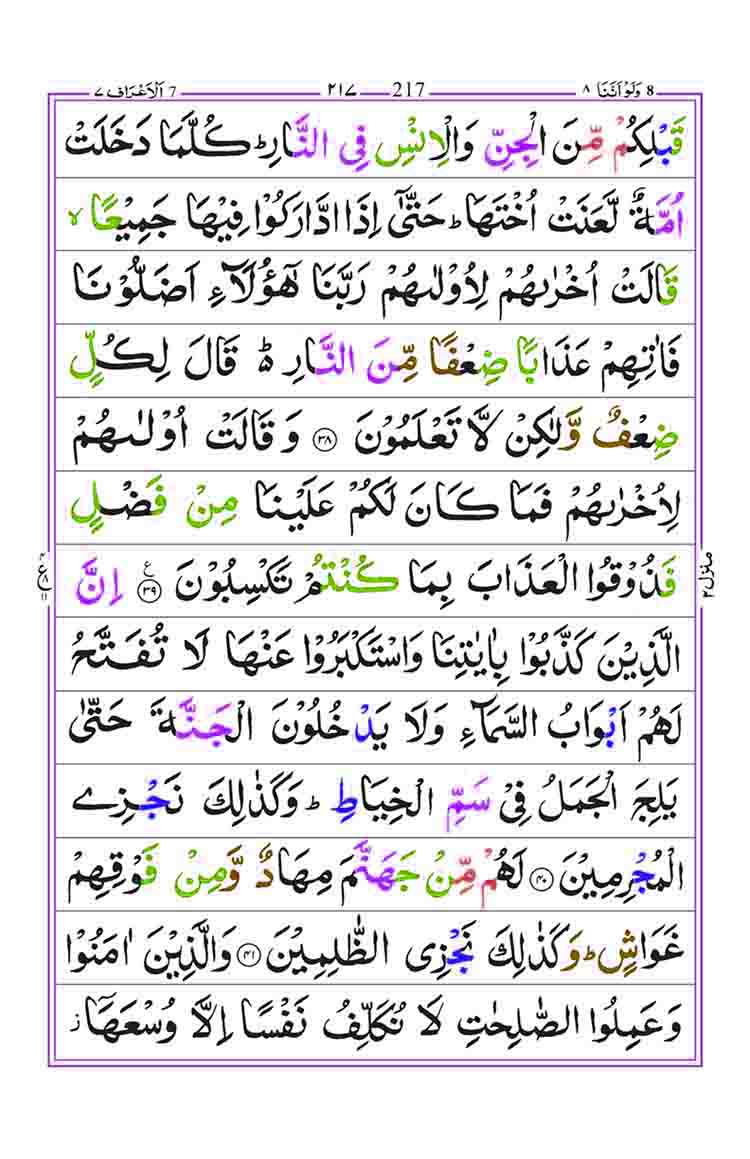 8 وَلَوْ اَنَّنَا ۸ 217 ۲۱۷ 7 اَلْاَعْرَاف ۷
قَبْلِكُمْ مِّنَ الْجِنِّ وَالْاِنْسِ فِی النَّارِ ؕ كُلَّمَا دَخَلَتْ
اُمَّةٌ لَّعَنَتْ اُخْتَهَا ؕ حَتّٰۤی اِذَا ادَّارَكُوْا فِیْهَا جَمِیْعًا ۙ
قَالَتْ اُخْرٰىهُمْ لِاُوْلٰىهُمْ رَبَّنَا هٰۤؤُلَآءِ اَضَلُّوْنَا
فَاٰتِهِمْ عَذَابًا ضِعْفًا مِّنَ النَّارِ ؕ۬ قَالَ لِكُلٍّ
ضِعْفٌ وَّلٰكِنْ لَّا تَعْلَمُوْنَ ۳۸ وَ قَالَتْ اُوْلٰىهُمْ
لِاُخْرٰىهُمْ فَمَا كَانَ لَكُمْ عَلَیْنَا مِنْ فَضْلٍ
فَذُوْقُوا الْعَذَابَ بِمَا كُنْتُمْ تَكْسِبُوْنَ ع ۳۹ اِنَّ
منزل ۲
ع ۴ ۸ ۱۱
الَّذِیْنَ كَذَّبُوْا بِاٰیٰتِنَا وَاسْتَكْبَرُوْا عَنْهَا لَا تُفَتَّحُ
لَهُمْ اَبْوَابُ السَّمَآءِ وَلَا یَدْخُلُوْنَ الْجَنَّةَ حَتّٰی
یَلِجَ الْجَمَلُ فِیْ سَمِّ الْخِیَاطِ ؕ وَكَذٰلِكَ نَجْزِی
الْمُجْرِمِیْنَ ۴۰ لَهُمْ مِّنْ جَهَنَّمَ مِهَادٌ وَّمِنْ فَوْقِهِمْ
غَوَاشٍ ؕ وَكَذٰلِكَ نَجْزِی الظّٰلِمِیْنَ ۴۱ وَالَّذِیْنَ اٰمَنُوْا
وَعَمِلُوا الصّٰلِحٰتِ لَا نُكَلِّفُ نَفْسًا اِلَّا وُسْعَهَاۤ ؗ